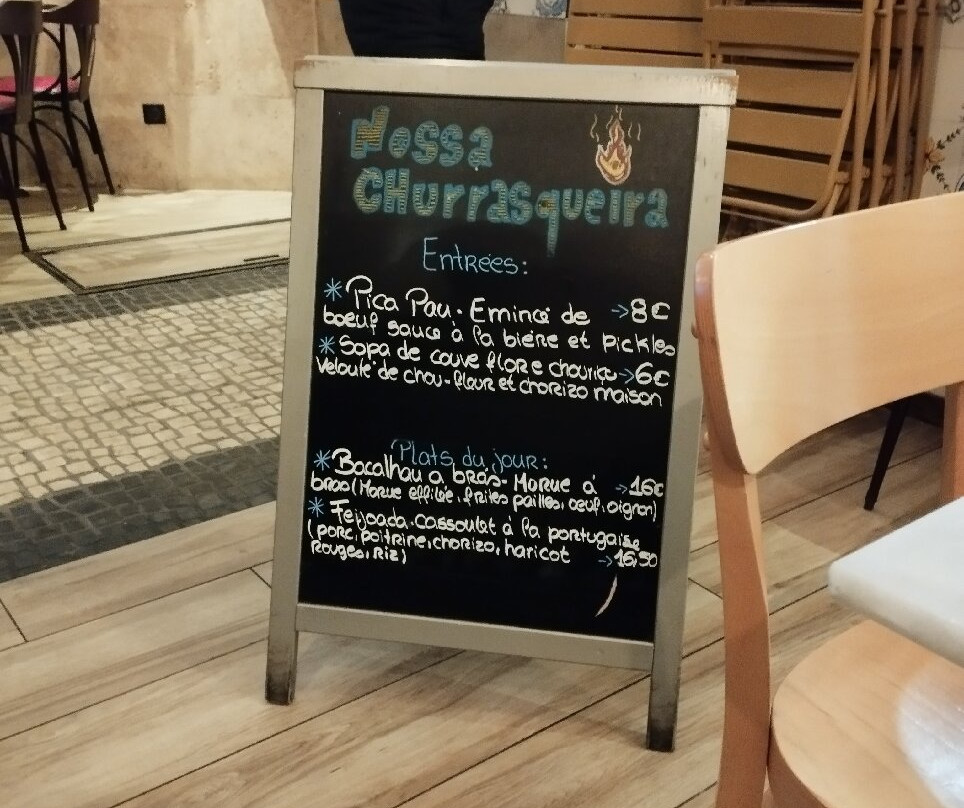 Nossa
CHurrasqueira
Entrées:
* Pica Pau. Emincé de → 8€
boeuf sauce à la bière et pickles
* Sopa de couve flor e chouriço → 6€
Velouté de chou-fleur et chorizo maison
Plats du jour:
* Bacalhau a brás- Morue à → 16€
bras (Morue effilée, frites pailles, œuf, oignon)
* Feijoada. Cassoulet à la portugaise
(porc, poitrine, chorizo, haricot → 16,50
Rouges, Riz)